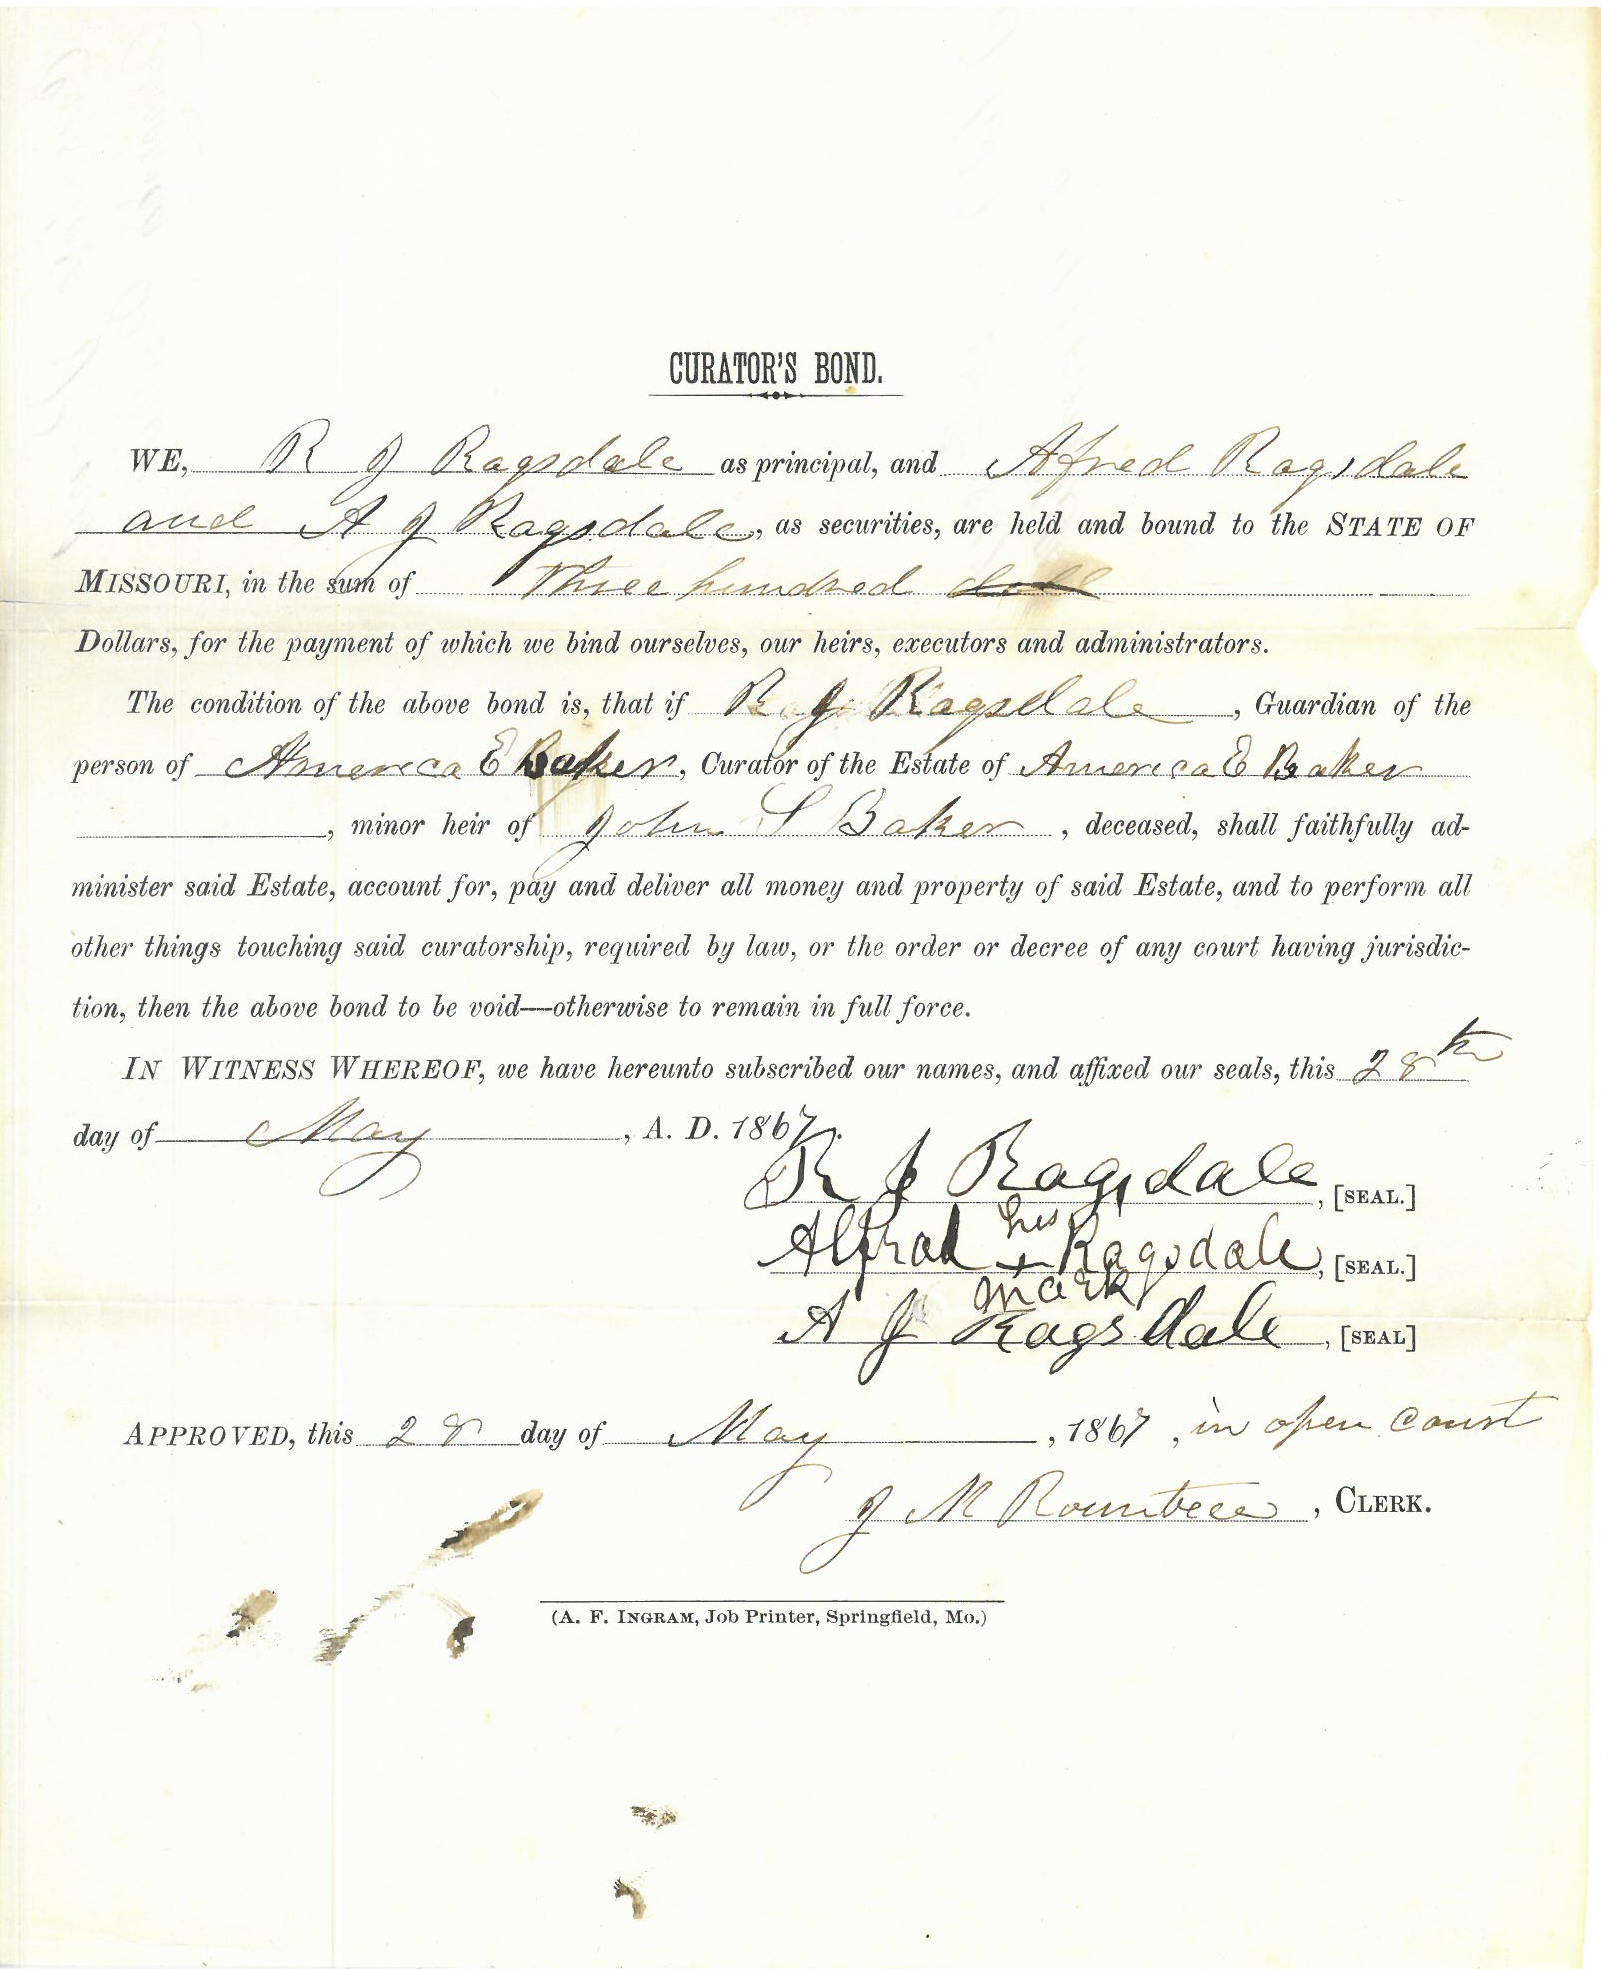 CURATOR'S BOND.
WE, R J Ragsdale as principal, and Alfred Ragsdale
and A J Ragsdale, as securities, are held and bound to the STATE OF
MISSOURI, in the sum of Three hundred doll
Dollars, for the payment of which we bind ourselves, our heirs, executors and administrators.
The condition of the above bond is, that if R J Ragsdale, Guardian of the
person of America E Baker, Curator of the Estate of America E Baker
, minor heir of John S Baker, deceased, shall faithfully ad-
minister said Estate, account for, pay and deliver all money and property of said Estate, and to perform all
other things touching said curatorship, required by law, or the order or decree of any court having jurisdic-
tion, then the above bond to be void—otherwise to remain in full force.
IN WITNESS WHEREOF, we have hereunto subscribed our names, and affixed our seals, this 28th
day of May, A. D. 1867.
R J Ragsdale, [SEAL.]
his
Alfred + Ragsdale, [SEAL.]
mark
A J Ragsdale, [SEAL]
APPROVED, this 28 day of May, 1867, in open court
J M Rountree, CLERK.
(A. F. INGRAM, Job Printer, Springfield, Mo.)